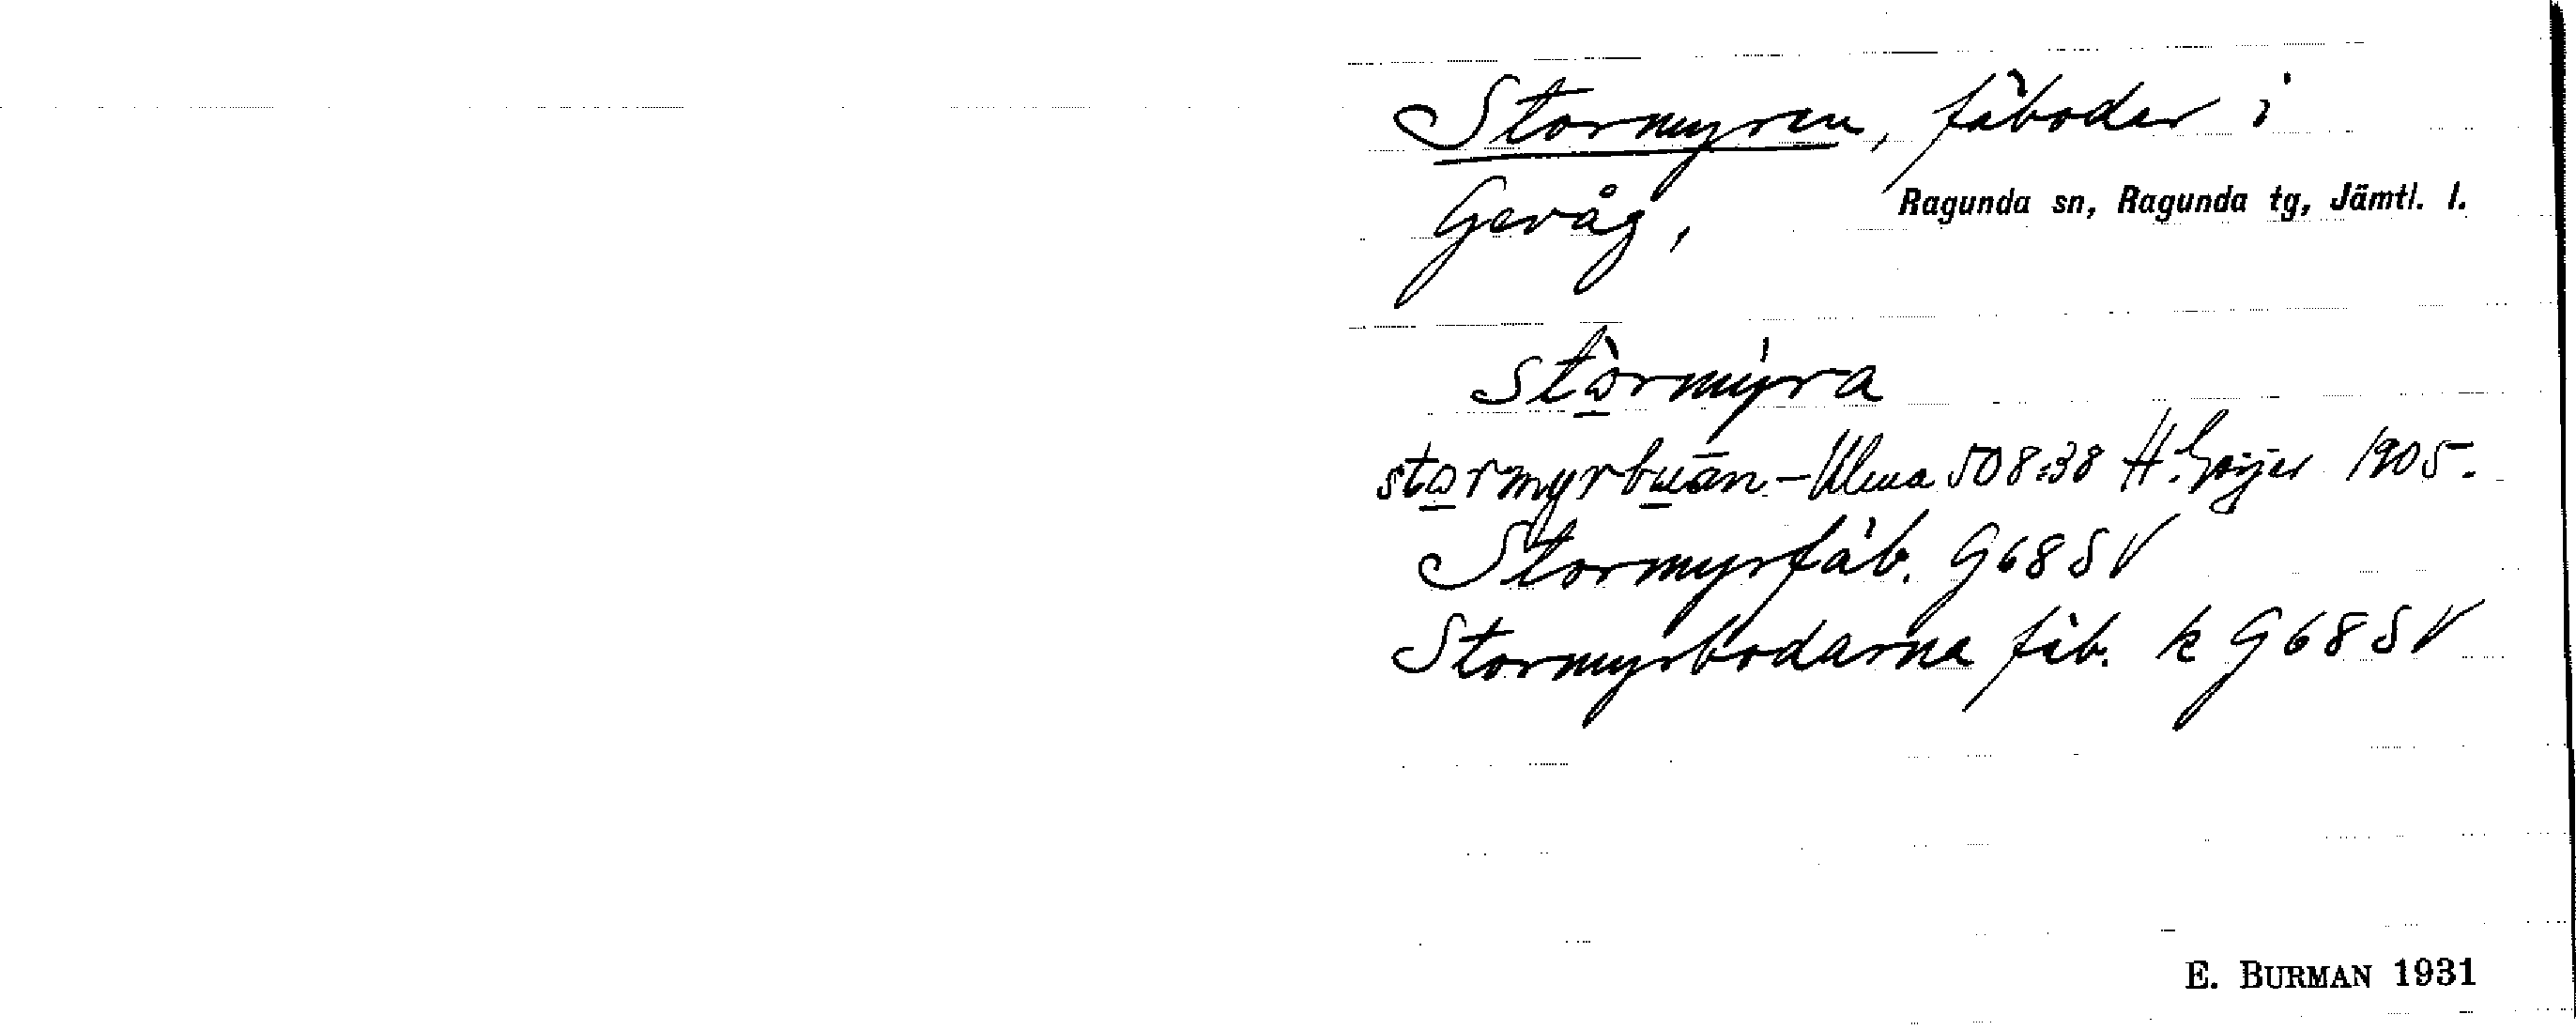 Stormyren, fäboder i
Gevåg, Ragunda sn, Ragunda tg, Jämtl. l.
stòrmýra
stormyrbuān - Ulma 508:38 H. Geijer 1905.
Stormyrfäb. G68SV
Stormyrbodarna fäb. k G68SV
E. BURMAN 1931